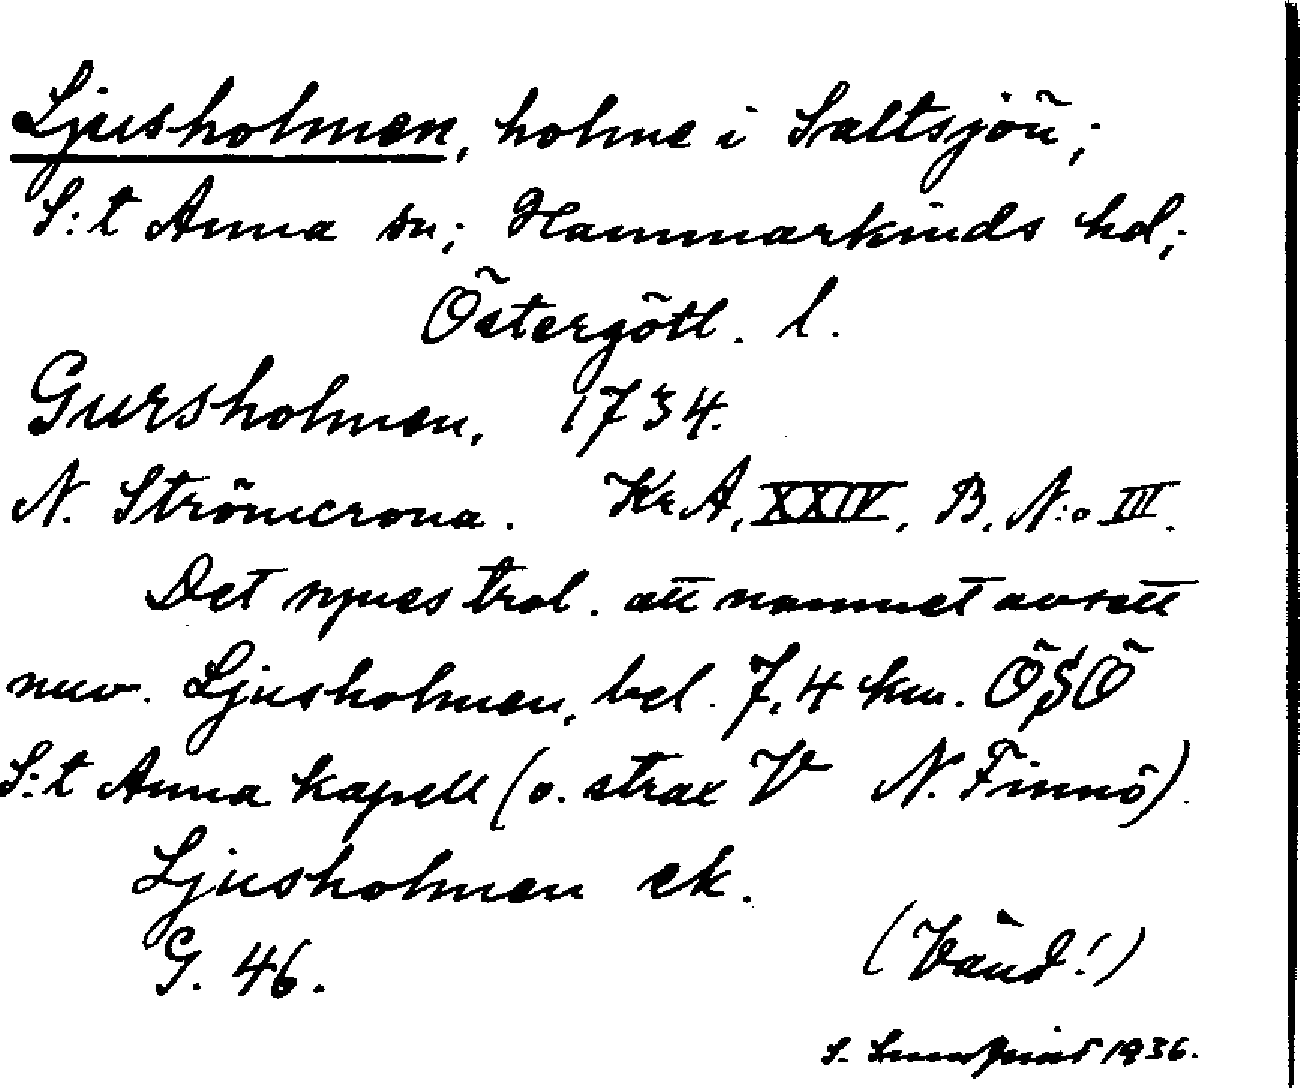 Ljusholmen, holme i Saltsjön;
S:t Anna sn; Hammarkinds hd;
Östergötl. l.
Gursholmen, 1734.
N. Strömcrona. Kr.A, XXIV, B, N:o III.
Det synes trol. att namnet avsett
nuv. Ljusholmen, bel. 7,4 km. ÖSÖ
S:t Anna kapell (o. strax V N. Finnö).
Ljusholmen ek.
G. 46.
(Vänd!)
S. 1936.